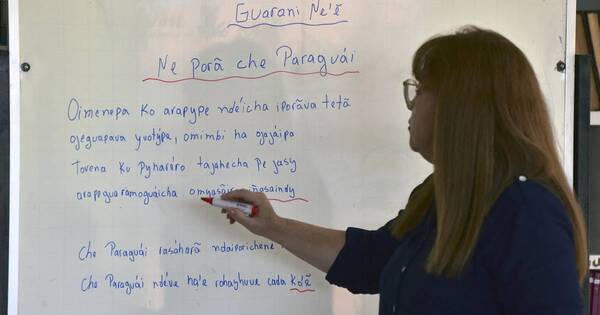 Guarani Ñe'ẽ
Ne porã che Paraguái
Oimenepa ko arapype ndéicha iporãva tetã
ojeguapava yvotýpe, omimbi ha ojajáipa
Tovena ku pyharéro tajahecha pe jasy
arapeguaramoguáicha omyasãi iñasaindy
Che Paraguái rasáharã ndaiporichene
Che Paraguái ndéve ha'e rohayhuve cada ko'ẽ